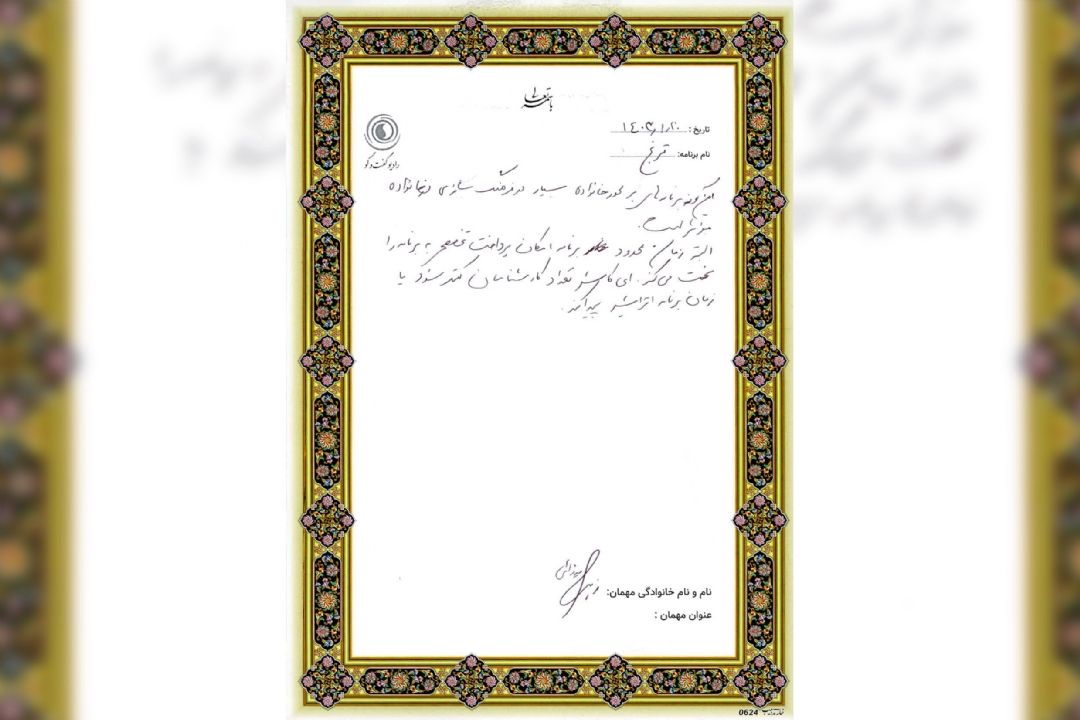 باسمه تعالی
رادیو گفت و گو
تاریخ: ۱۴۰۳/۱/۲۰
نام برنامه:
این گونه برنامه‌های بر محور خانواده بسیار در فرهنگ سازی نهاد خانواده
مؤثر است.
البته زمان محدود برنامه امکان پرداخت تخصصی به برنامه را
سخت می‌کند. ای کاش تعداد کارشناسان کمتر شود یا
زمان برنامه افزایش پیدا کند.
نام و نام خانوادگی مهمان:
عنوان مهمان :
0624